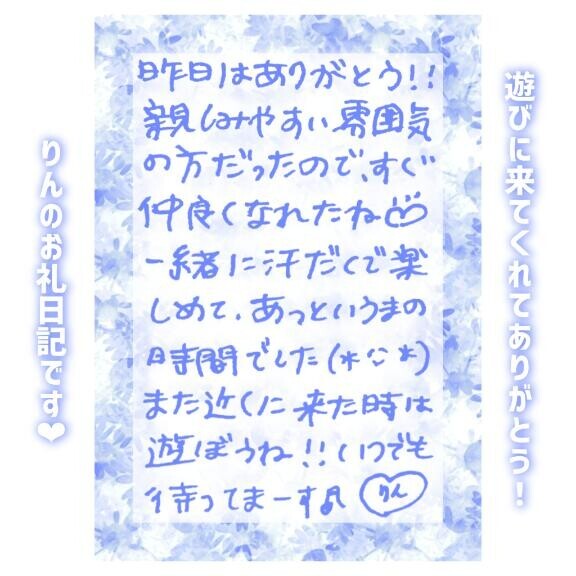 遊びに来てくれてありがとう!
昨日はありがとう!!
親しみやすい雰囲気
の方だったので、すぐ
仲良くなれたね
一緒に汗だくで楽
しめて、あっというまの
時間でした(*¨*)
また近くに来た時は
遊ぼうね!!いつでも
待ってまーす♪ りん
りんのお礼日記です❤